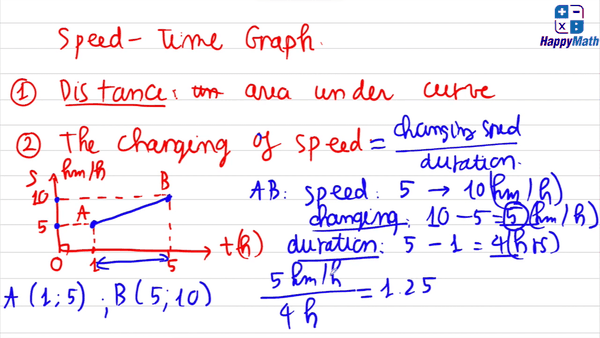 HappyMath
Speed-Time Graph.
① Distance: area under curve
② The changing of speed = changing speed / duration.
S km/h
10
5
A
B
0 1 5 t(h)
AB: speed: 5 → 10 (km/h)
changing: 10 - 5 = 5 (km/h)
duration: 5 - 1 = 4 (hrs)
A (1;5) ; B (5;10)
5 km/h / 4 h = 1.25